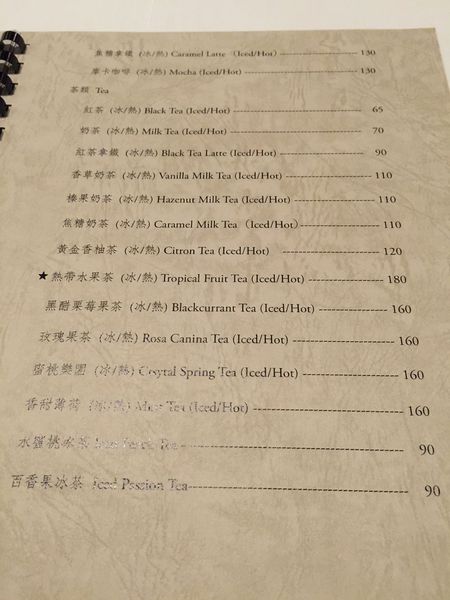 焦糖拿鐵 (冰/熱) Caramel Latte (Iced/Hot) 130
摩卡咖啡 (冰/熱) Mocha (Iced/Hot) 130
茶類 Tea
紅茶 (冰/熱) Black Tea (Iced/Hot) 65
奶茶 (冰/熱) Milk Tea (Iced/Hot) 70
紅茶拿鐵 (冰/熱) Black Tea Latte (Iced/Hot) 90
香草奶茶 (冰/熱) Vanilla Milk Tea (Iced/Hot) 110
榛果奶茶 (冰/熱) Hazenut Milk Tea (Iced/Hot) 110
焦糖奶茶 (冰/熱) Caramel Milk Tea (Iced/Hot) 110
黃金香柚茶 (冰/熱) Citron Tea (Iced/Hot) 120
★熱帶水果茶 (冰/熱) Tropical Fruit Tea (Iced/Hot) 180
黑醋栗莓果茶 (冰/熱) Blackcurrant Tea (Iced/Hot) 160
玫瑰果茶 (冰/熱) Rosa Canina Tea (Iced/Hot) 160
蜜桃樂園 (冰/熱) Crsytal Spring Tea (Iced/Hot) 160
香甜薄荷 (冰/熱) Mint Tea (Iced/Hot) 160
水蜜桃冰茶 Iced Peach Tea 90
百香果冰茶 Iced Passion Tea 90